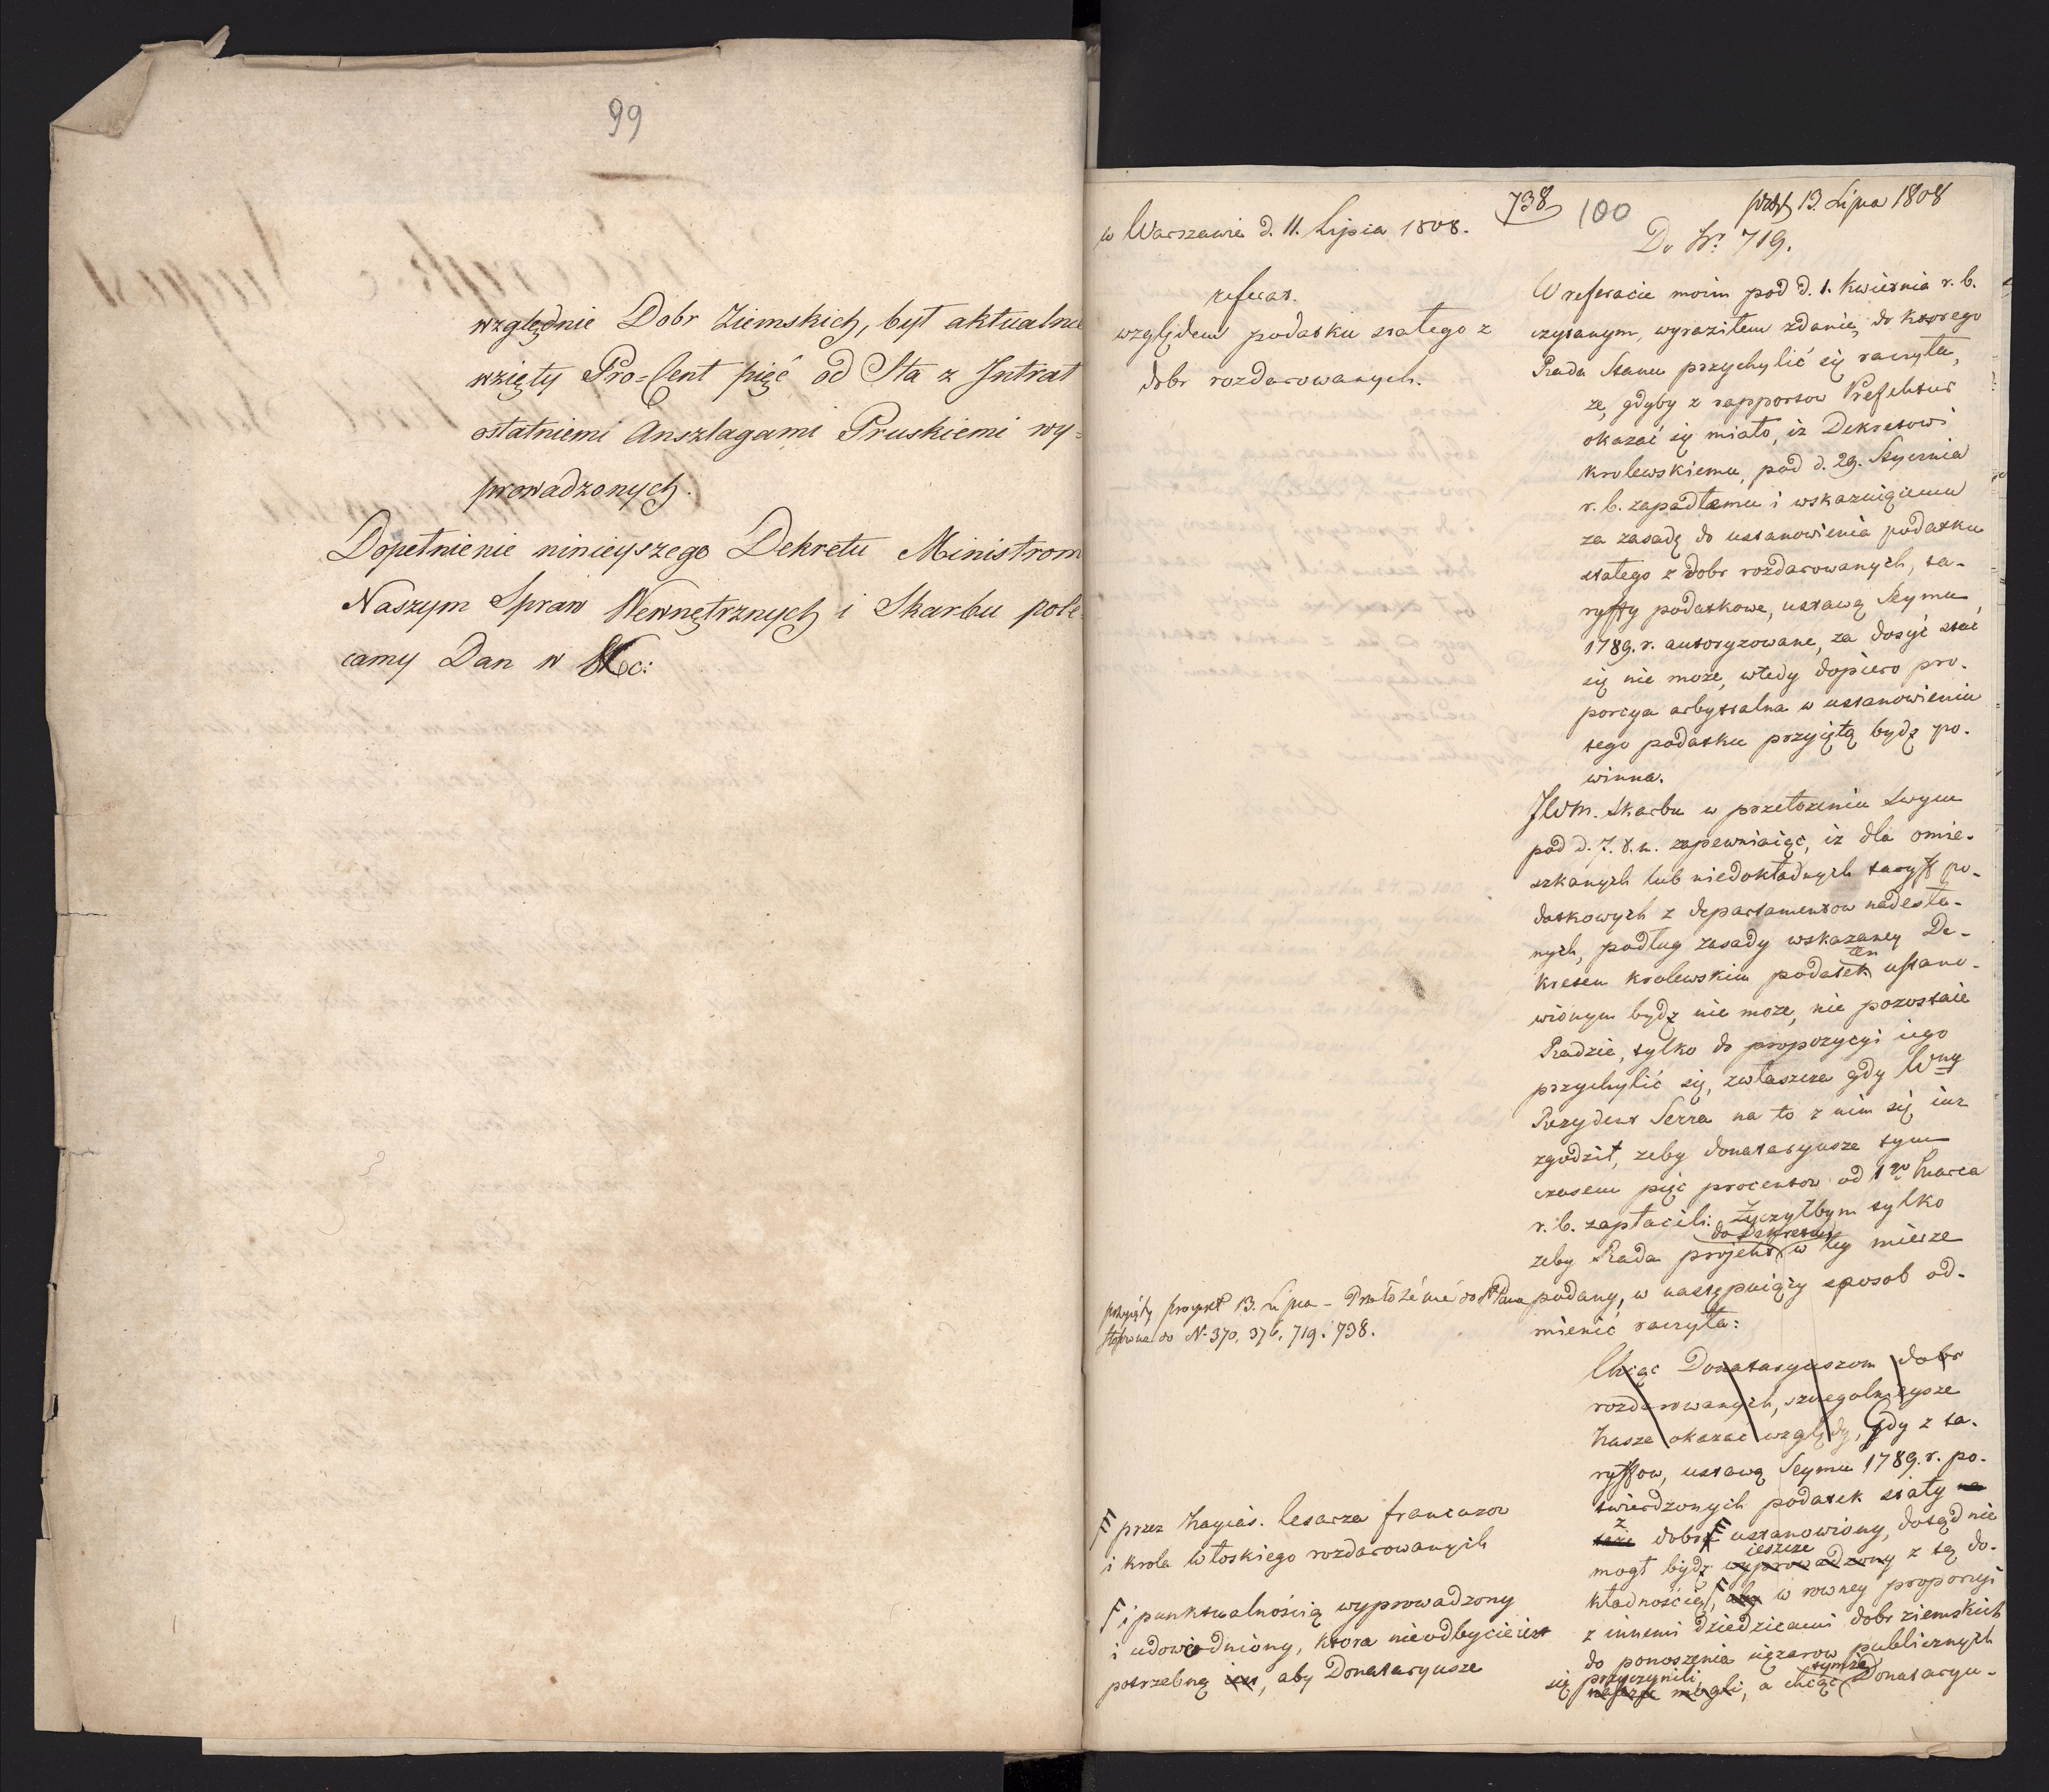 99
względnie Dobr Ziemskich, był aktualne
wzięty Pro=Cent pięć od Sta z Intrat
ostatniemi Anszlagami Pruskiemi wy=
prowadzonych.
Dopełnienie ninieyszego Dekretu Ministrom
Naszym Spraw Wewnętrznych i Skarbu pole=
camy Dan w &c:
738 100
w Warszawie d. 11. Lipca 1808.
referat.
względem podatku stałego z
dobr rozdarowanych.
13. Lipca 1808
Do Nr. 719.
W referacie moim pod d. 1. Kwietnia r. b.
czytanym, wyraziłem zdanie, do ktorego
Rada Stanu przychylić się raczyła,
że, gdyby z rapportow Prefektur
okazać się miało, iż Dekretowi
krolewskiemu, pod d. 29. Stycznia
r. b. zapadłemu i wskazuiącemu
za zasadę do ustanowienia podatku
stałego z dobr rozdarowanych, ta-
ryffy podatkowe, ustawą Seymu
1789. r. autoryzowane, za dosyć stać
się nie może, wtedy dopiero pro-
porcya arbytralna w ustanowieniu
tego podatku przyiętą bydź po-
winna.
JWM. Skarbu w przełożeniu swym
pod d. 7. t. m. zapewniaiąc, iż dla omie-
szkanych lub niedokładnych taryff po-
datkowych z departamentow nadesła-
nych, podług zasady wskazaney De-
kretem krolewskim podatek ten ustano-
wionym bydź nie może, nie pozostaie
Radzie, tylko do propozycyi iego
przychylić się, zwłaszcza gdy Wny
Rezydent Serra na to z nim się iuż
zgodził, żeby donataryusze tym
czasem pięć procentow od 1go Marca
r. b. zapłacili. Życzyłbym tylko
żeby Rada projekt do Dekretu w tey mierze
podany, w następuiący sposob od-
mienić raczyła:
przyięty proiekt 13. Lipca - Przełożenie do N. Pana
stosowne do N. 370. 376. 719. 738.
Chcąc Donataryuszom dobr
rozdarowanych, szczegolnieysze
Nasze okazać względy, Gdy z ta-
ryffow, ustawą Seymu 1789. r. po-
twierdzonych podatek stały na
z dobr F ustanowiony, dotąd nie
mogł bydź ieszcze wyprowadzony z tą do-
kładnością, F aby w rowney proporcyi
z innemi dziedzicami dobr ziemskich
do ponoszenia ciężarow publicznych
się przyczynili mogli, a chcąc tymże Donataryu-
F przez Nayias. Cesarza francuzow
i krola Włoskiego rozdarowanych
F i punktualnością wyprowadzony
i udowodniony, ktora nieodbycie iest
potrzebną iest, aby Donataryusze